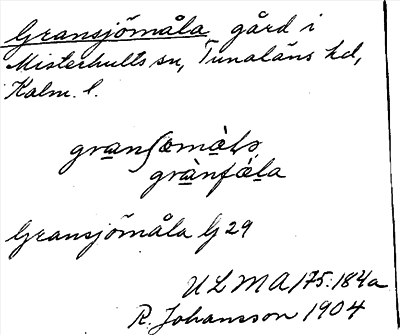 Gransjömåla gård i
Misterhults sn, Tunaläns hd,
Kalm. l.
Gransjömåla G 29
ULMA 175:184a
R. Johansson 1904